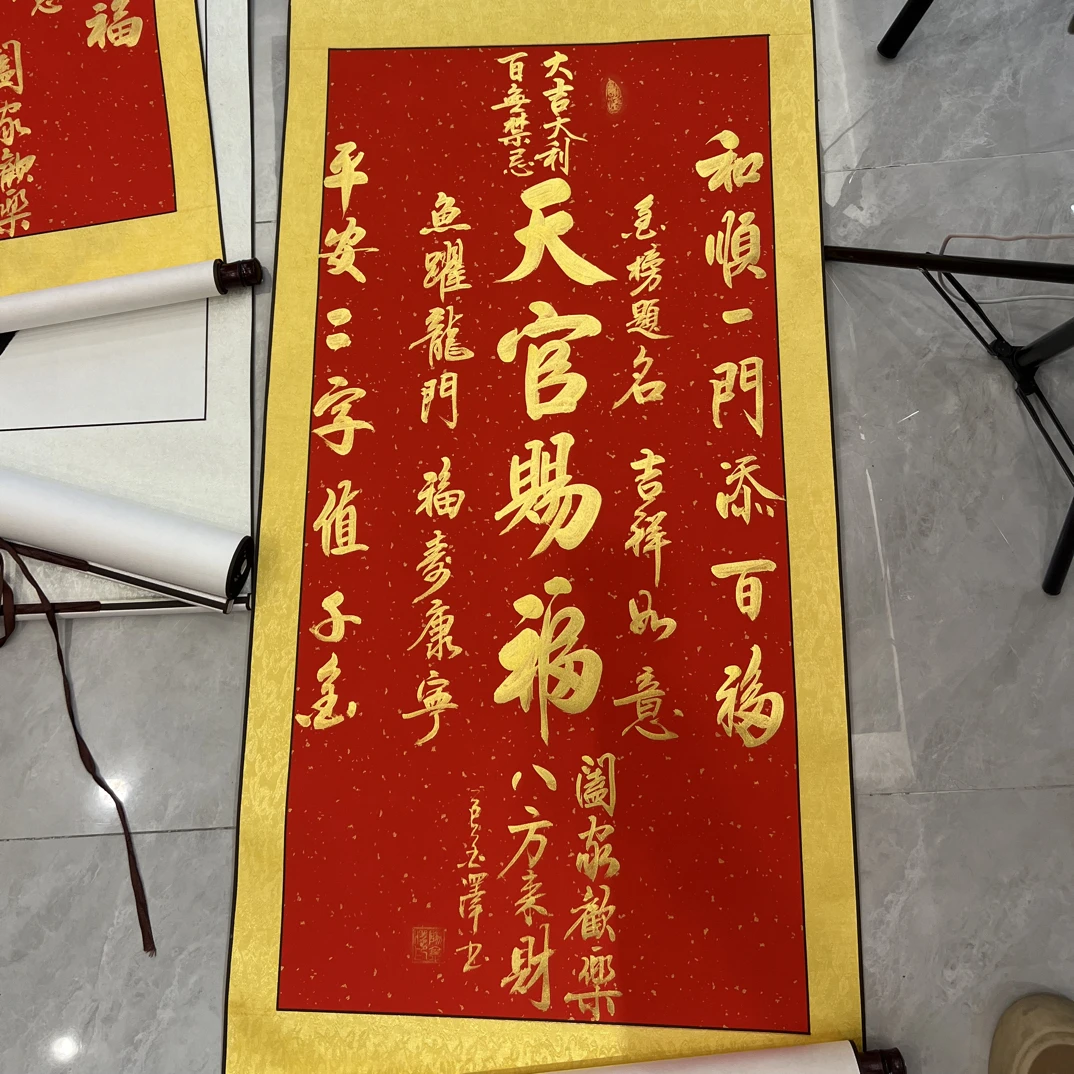 和順一門添百福
金榜題名 吉祥如意
大吉大利
百無禁忌
天官賜福
闔家歡樂
八方来財
魚躍龍門 福壽康寧
平安二字值千金
福
闔家歡樂